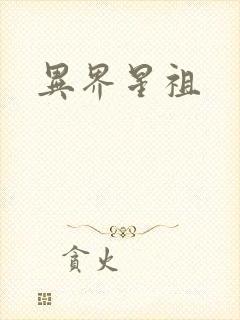 異界星祖
貪火